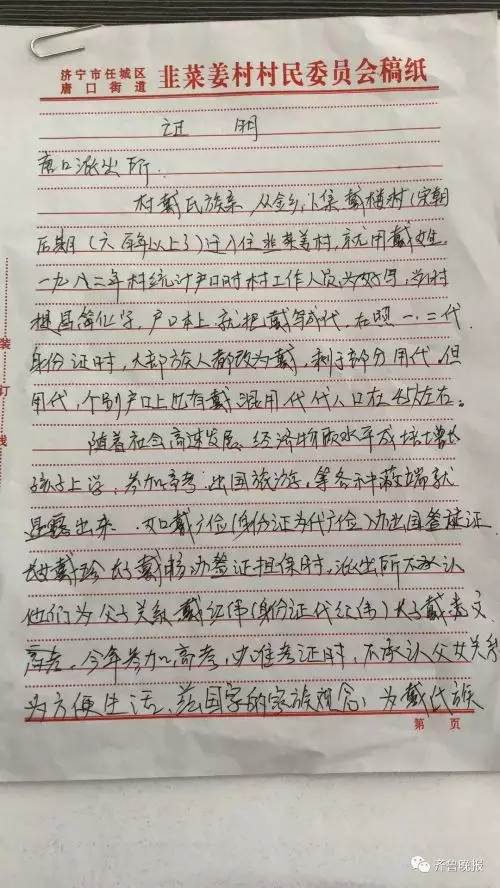 济宁市任城区
唐口街道
韭菜姜村村民委员会稿纸
证 明
唐口派出所
村戴氏族系从金乡卜集戴楼村(宋朝
后期(六百年以上了)迁入住韭菜姜村,就用戴姓
一九八二年村统计户口时村工作人员为好写,当村
提倡简化字,户口本上就把戴写成代,在照一、二代
身份证时,大部族人都改为戴,剩于部分用代.但
用代,个别户口上也有戴混用代代人口在45左右。
随着社会高速发展、经济物质水平及增长
孩子上学,参加高考.出国旅游,等各种弊端就
显露出来.戴广俭(身份证为代广俭)办出国签证
戴珍长子戴办签证担保时,派出所不承认
他们为父子关系.戴红伟(身份证代红伟)长子戴文
高考.今年参加高考,办准考证时,不承认父女关系
为方便生活、国家的家族观念,为戴氏族
第 页
装
订
线
齐鲁晚报